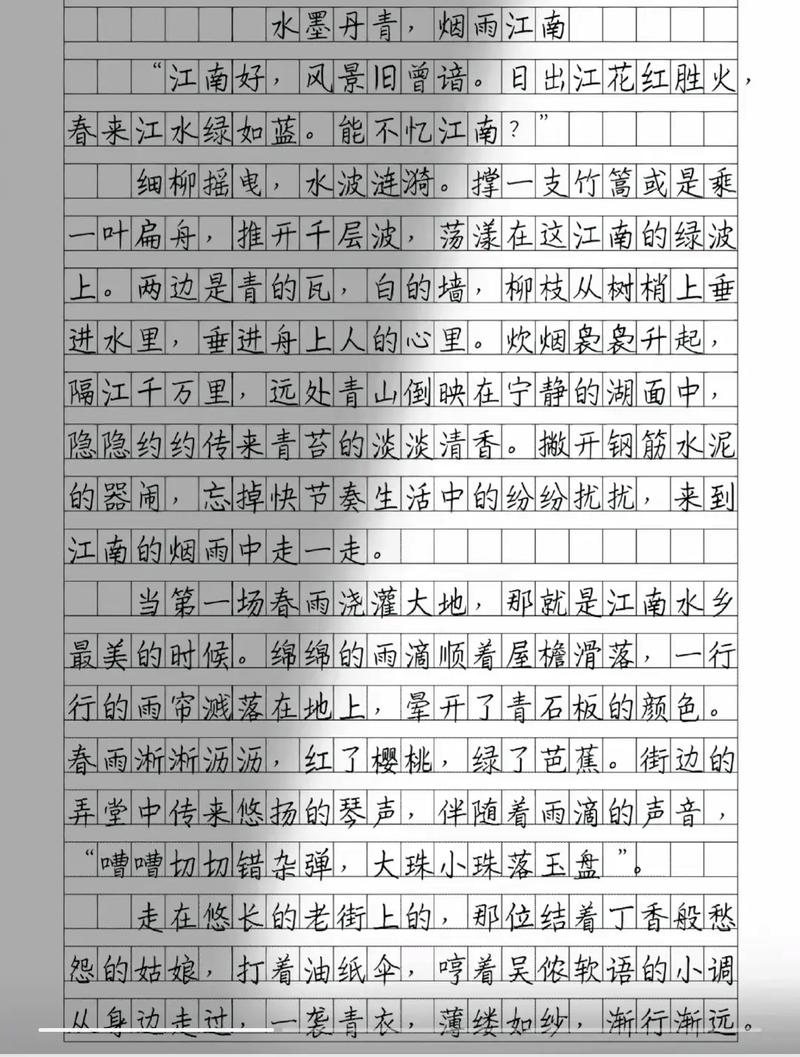 水墨丹青，烟雨江南
“江南好，风景旧曾谙。日出江花红胜火，
春来江水绿如蓝。能不忆江南？”
细柳摇曳，水波涟漪。撑一支竹篙或是乘
一叶扁舟，推开千层波，荡漾在这江南的绿波
上。两边是青的瓦，白的墙，柳枝从树梢上垂
进水里，垂进舟上人的心里。炊烟袅袅升起，
隔江千万里，远处青山倒映在宁静的湖面中，
隐隐约约传来青苔的淡淡清香。撇开钢筋水泥
的器闹，忘掉快节奏生活中的纷纷扰扰，来到
江南的烟雨中走一走。
当第一场春雨浇灌大地，那就是江南水乡
最美的时候。绵绵的雨滴顺着屋檐滑落，一行
行的雨帘溅落在地上，晕开了青石板的颜色。
春雨淅淅沥沥，红了樱桃，绿了芭蕉。街边的
弄堂中传来悠扬的琴声，伴随着雨滴的声音，
“嘈嘈切切错杂弹，大珠小珠落玉盘”。
走在悠长的老街上的，那位结着丁香般愁
怨的姑娘，打着油纸伞，哼着吴侬软语的小调
从身边走过，一袭青衣，薄缕如纱，渐行渐远。